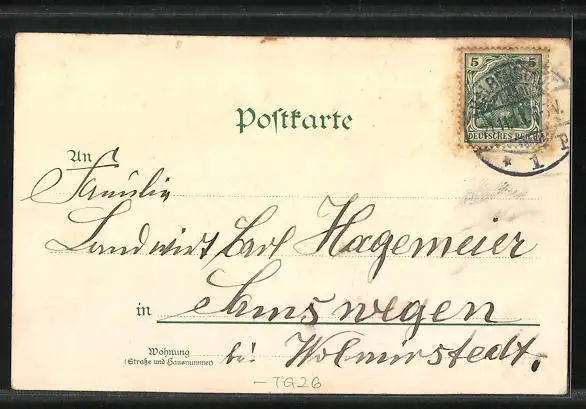 5 5
DEUTSCHES REICH
* 1
Postkarte
An
Familie
Landwirt Carl Hagemeier
in Samswegen
Wohnung
(Straße und Hausnummer)
bei Wolmirstedt.
-TG26